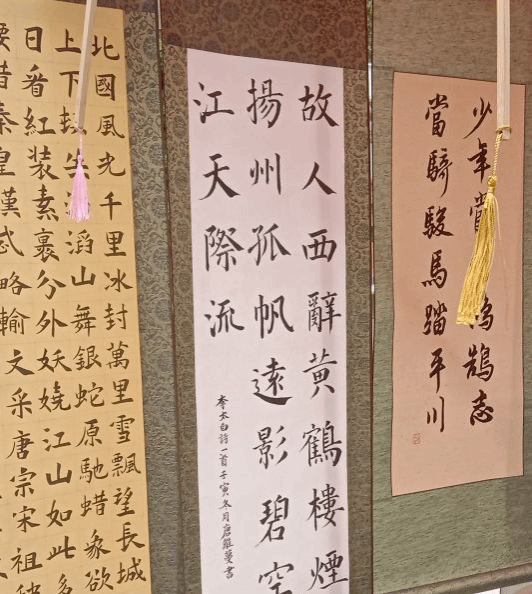 少年當鵠志
當騎駿馬踏平川
故人西辭黄鶴樓煙
揚州孤帆遠影碧空
江天際流
李太白詩一首壬寅冬月唐蔓書
北國風光千里冰封萬里雪飄望長城
上下失滔山舞銀蛇原馳蜡象欲
日看紅装素裹分外妖嬈江山如此多
腰惜秦皇漢武略輸文采唐宗宋祖